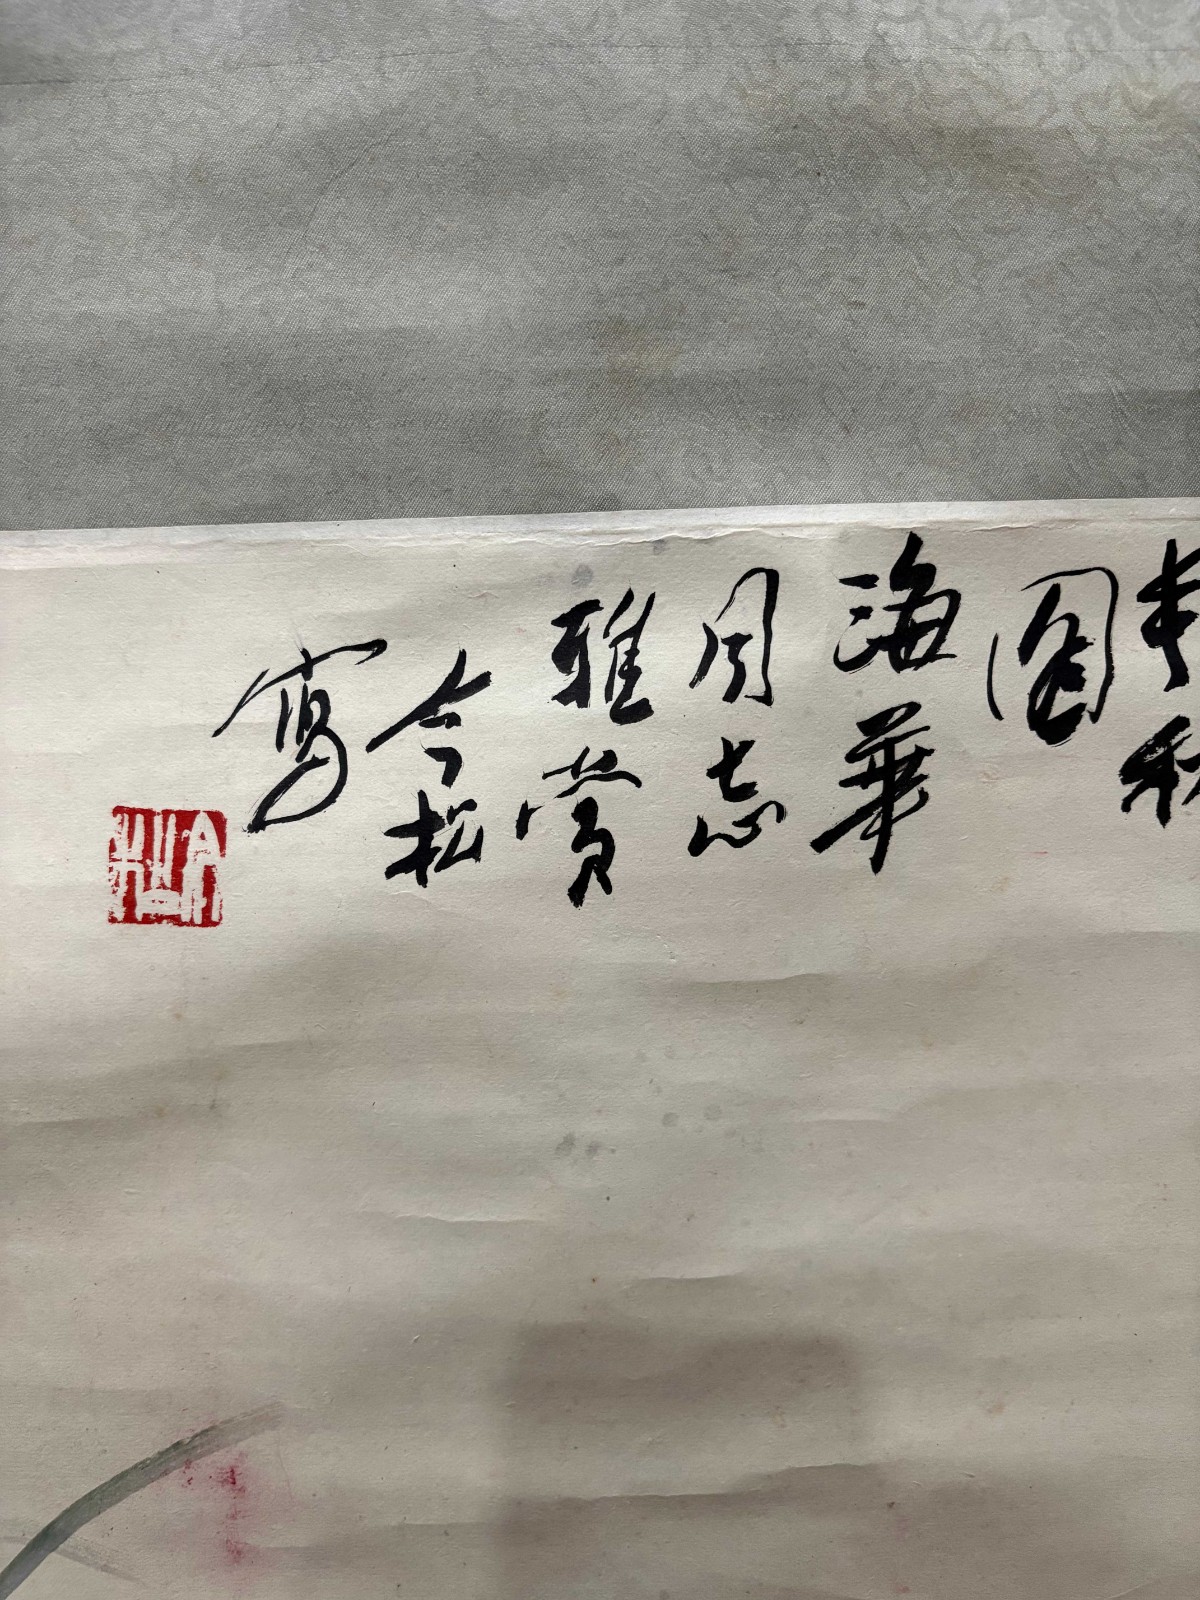 春秋
圖
海華
同志
雅賞
今松
寫